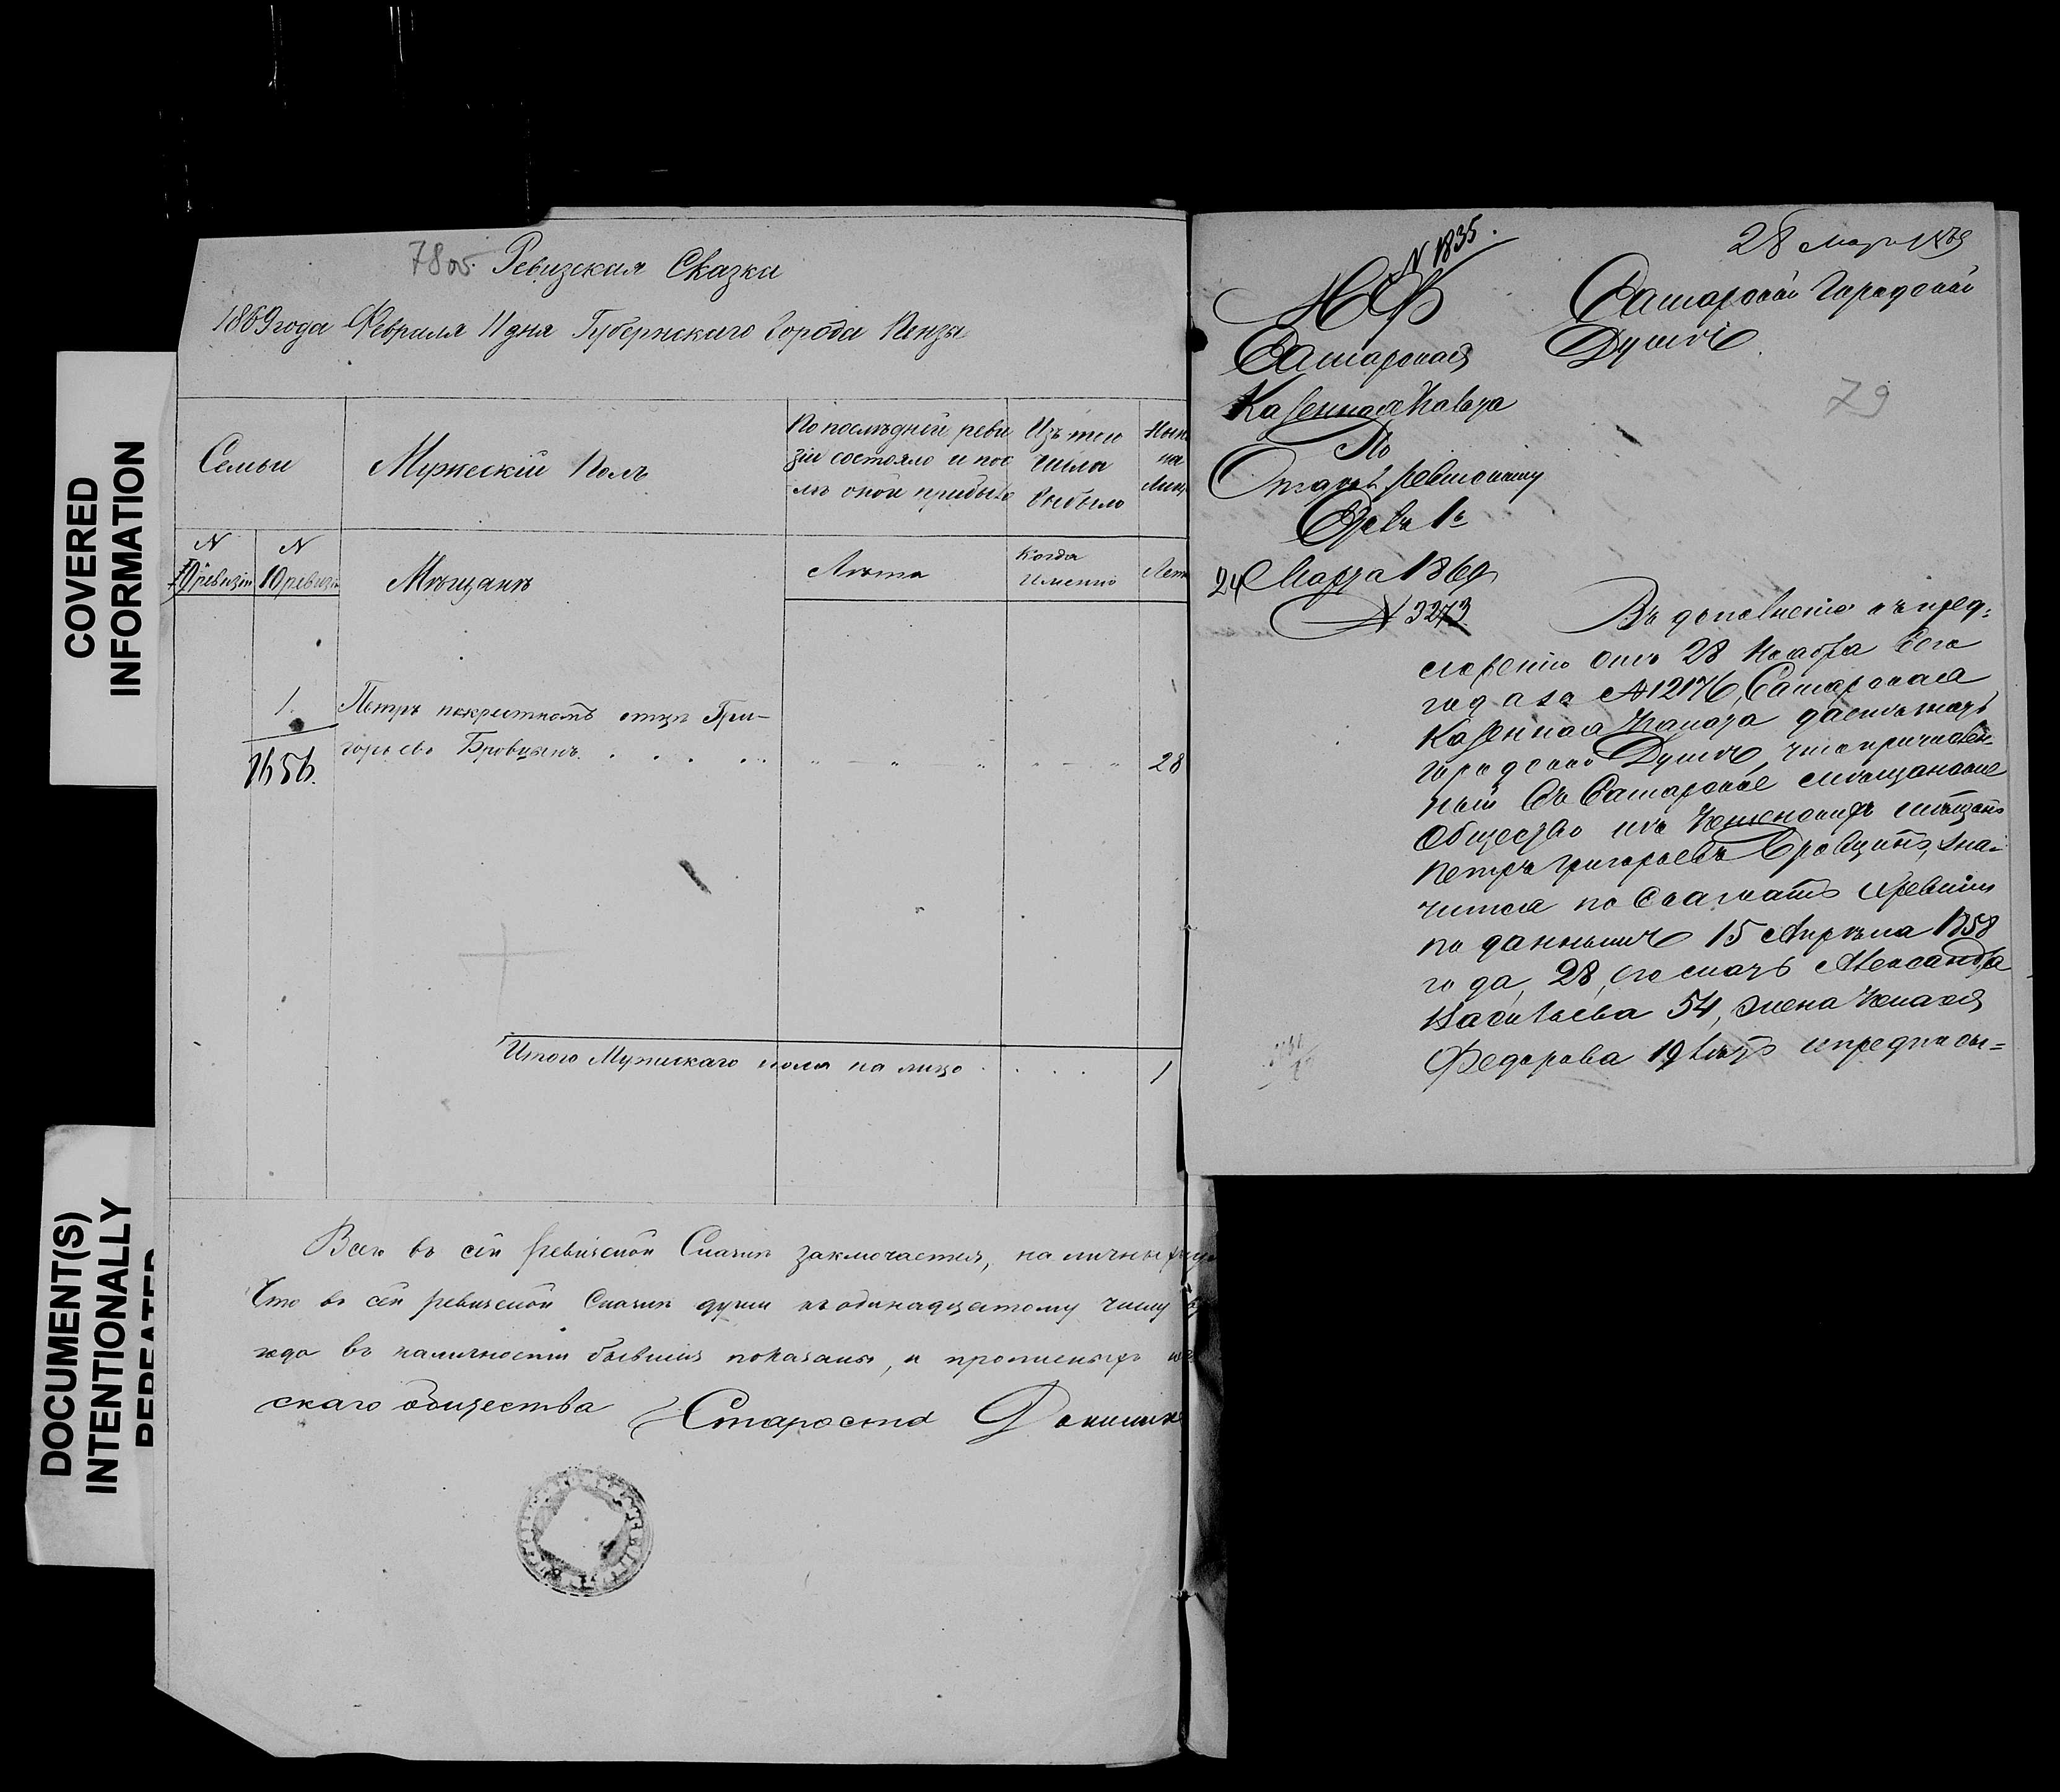 COVERED
INFORMATION
DOCUMENT(S)
INTENTIONALLY
REPEATED
78об. Ревизская Сказка
1869 года Февраля 11 дня Губернскаго Города Пензы
Семьи
Мужескій Полъ
По последней реви
зіи состояло и пос
лѣ оной прибыло
Изъ того
числа
выбыло
Нын
на
лиц
N
ревизіи
N
10 ревизіи
Мѣщанъ
Лѣта
Когда
Именно
Лета
1.
1656.
Петръ покрестномъ отцѣ Гри-
горьевъ Бровцынъ
28
Итого Мужескаго пола на лицо
1
Всего въ сей ревизской Сказкѣ заключается, наличныхъ
Что въ сей ревизской Сказкѣ души къ одинадцатому числу
года въ наличности бывшія показаны, и прописныхъ
скаго общества Староста
N 1835.
28 Мар 1869
М.Ф.
Самарская
Казенная Палата
По
Отдѣл. Ревизскому
Столъ 1й
24 Марта 1869
N 3273
Самарской Городской
Думѣ
79
Въ дополненіе къ пред-
ложенію отъ 28 Ноября сего
года за N 12176, Самарская
Казенная Палата даетъ знать
городской Думѣ, что причислен-
ный въ Самарское мѣщанское
Общество изъ Пензенскихъ мѣщанъ
Петръ Григорьевъ Бровцынъ, зна-
чится по сказкамъ ревизіи
поданнымъ 15 Апрѣля 1858
года, 28, его мать Александра
Васильева 54, жена
Федорова 19 лѣтъ и предписы-